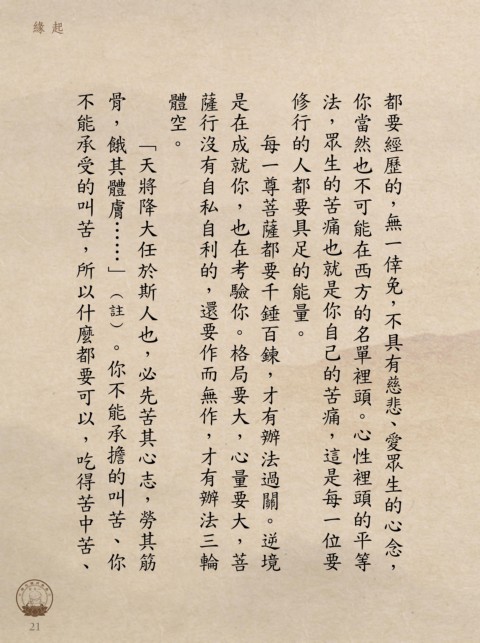 緣起
都要經歷的，無一倖免，不具有慈悲、愛眾生的心念，
你當然也不可能在西方的名單裡頭。心性裡頭的平等
法，眾生的苦痛也就是你自己的苦痛，這是每一位要
修行的人都要具足的能量。
每一尊菩薩都要千錘百鍊，才有辦法過關。逆境
是在成就你，也在考驗你。格局要大，心量要大，菩
薩行沒有自私自利的，還要作而無作，才有辦法三輪
體空。
「天將降大任於斯人也，必先苦其心志，勞其筋
骨，餓其體膚……」（註）。你不能承擔的叫苦、你
不能承受的叫苦，所以什麼都要可以，吃得苦中苦、
21